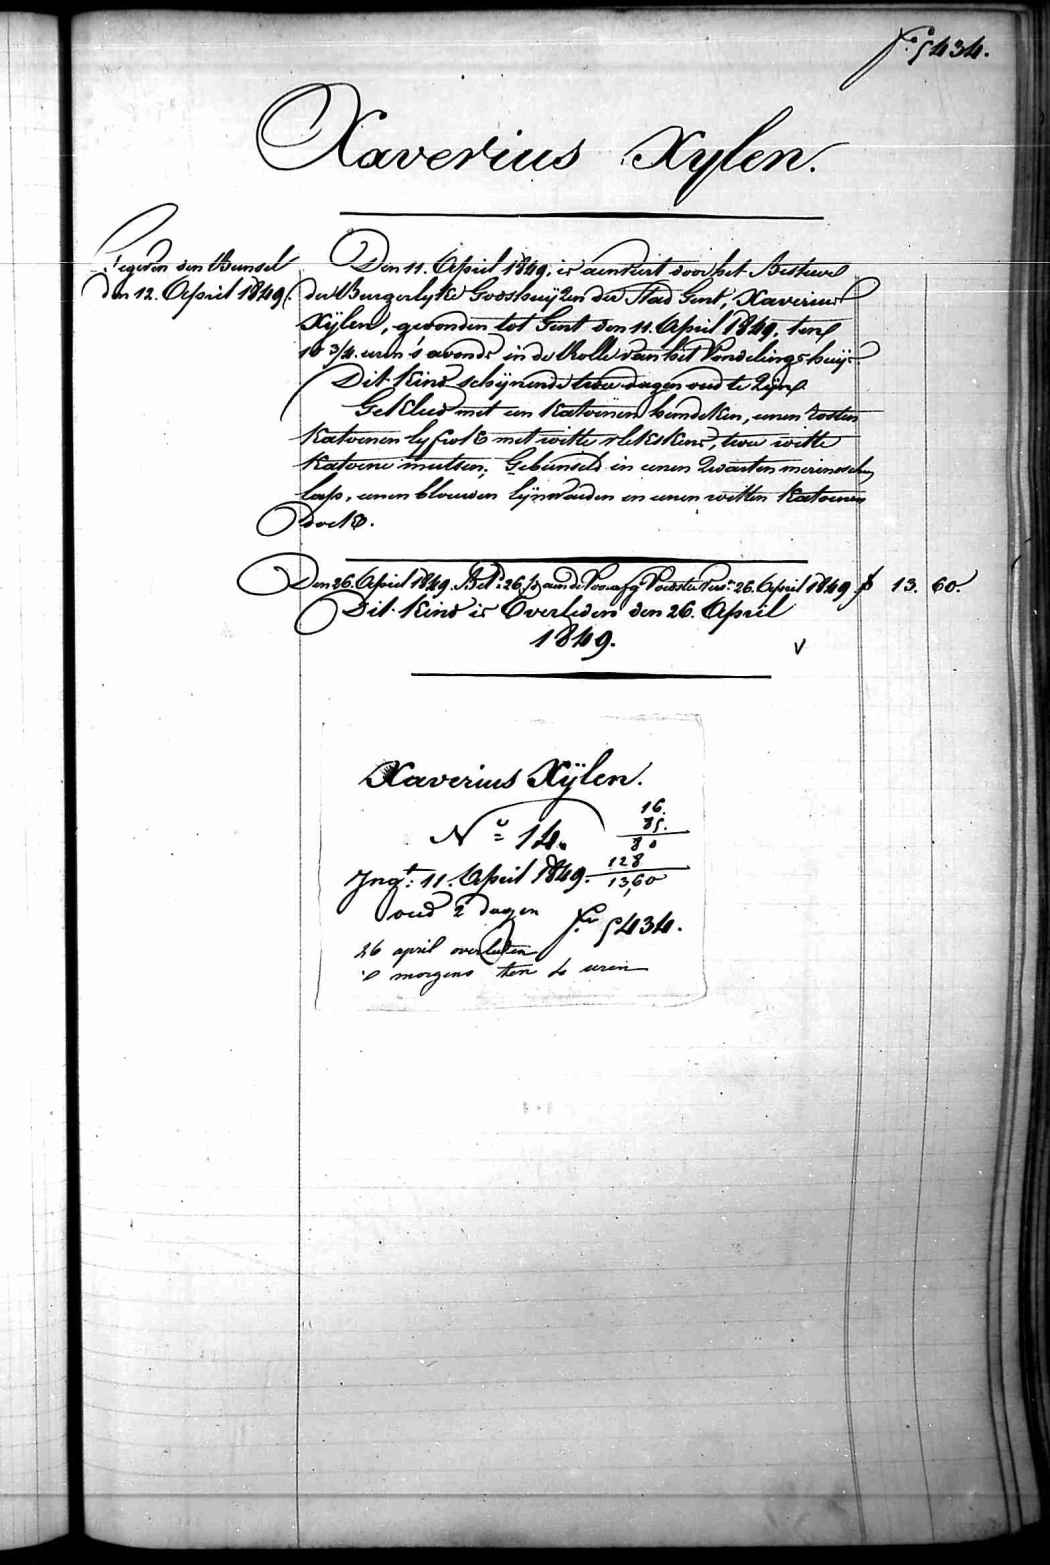 F.º 5434.
Xaverius Xylen.
Gegeven den Bunsel
den 12. April 1849.
Den 11. April 1849. is aenveirt door het Bestuur
der Burgerlyke Godshuijzen der Stad Gent, Xaverius
Xÿlen, gevonden tot Gent den 11. April 1849. ten
10 3/4. uren 's avonds in de Rolle van het Vondelingshuijs
Dit Kind schÿnende twee dagen oud te zÿn
Gekleed met een Katoenen hemdeken, eenen rosten
Katoenen lyfrok met witte vlekskens, twee witte
Katoene mutsen; Gebunseld in eenen zwarten merinoschen
lap, eenen blauwen lÿnwaeden en eenen witten Katoenen
doek.
Den 26. April 1849. Bet. 26. aen de Voorafg. Voedster 26. April 1849 13. 60.
Dit Kind is Overleden den 26. April
1849. v
Xaverius Xÿlen.
16.
85.
Nº 14.
80
128
Ingt: 11. April 1849. 13,60
oud 2 dagen Fº 5434.
26 april overleden
's morgens ten 4 uren